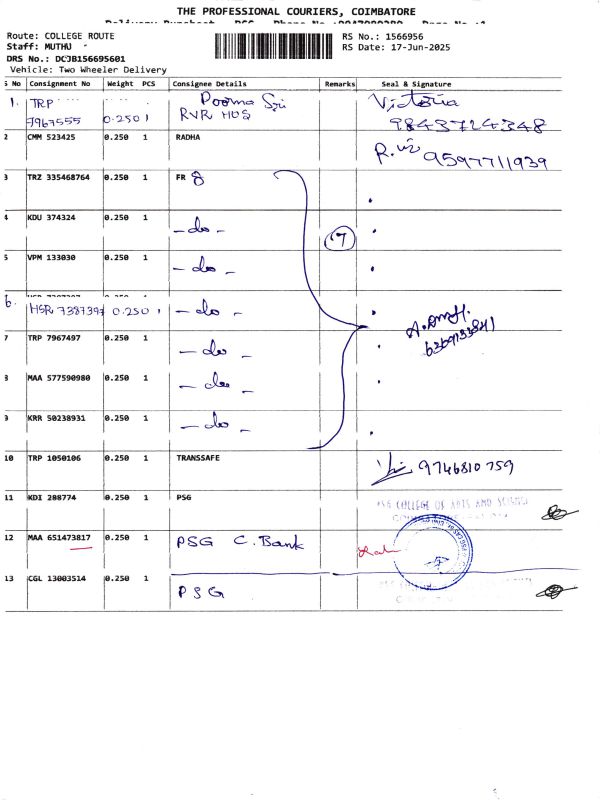 THE PROFESSIONAL COURIERS, COIMBATORE
Route: COLLEGE ROUTE
RS No.: 1566956
Staff: MUTHU
RS Date: 17-Jun-2025
DRS No.: DCJB156695601
Vehicle: Two Wheeler Delivery
S No Consignment No Weight PCS Consignee Details Remarks Seal & Signature
1. TRP 7967555 0.250 1 Poorna Sri RVR HOS Victoria 9843724348
2 CMM 523425 0.250 1 RADHA 9597711939
3 TRZ 335468764 0.250 1 FR 8
4 KDU 374324 0.250 1 - do -
5 VPM 133030 0.250 1 - do -
6. HSR 7387397 0.250 1 - do -
7 TRP 7967497 0.250 1 - do -
8 MAA 577590980 0.250 1 - do -
9 KRR 50238931 0.250 1 - do -
7
6369133841
10 TRP 1050106 0.250 1 TRANSSAFE 9746810759
11 KDI 288774 0.250 1 PSG PSG COLLEGE OF ARTS AND SCIENCE
12 MAA 651473817 0.250 1 PSG C. Bank
13 CGL 13003514 0.250 1 PSG